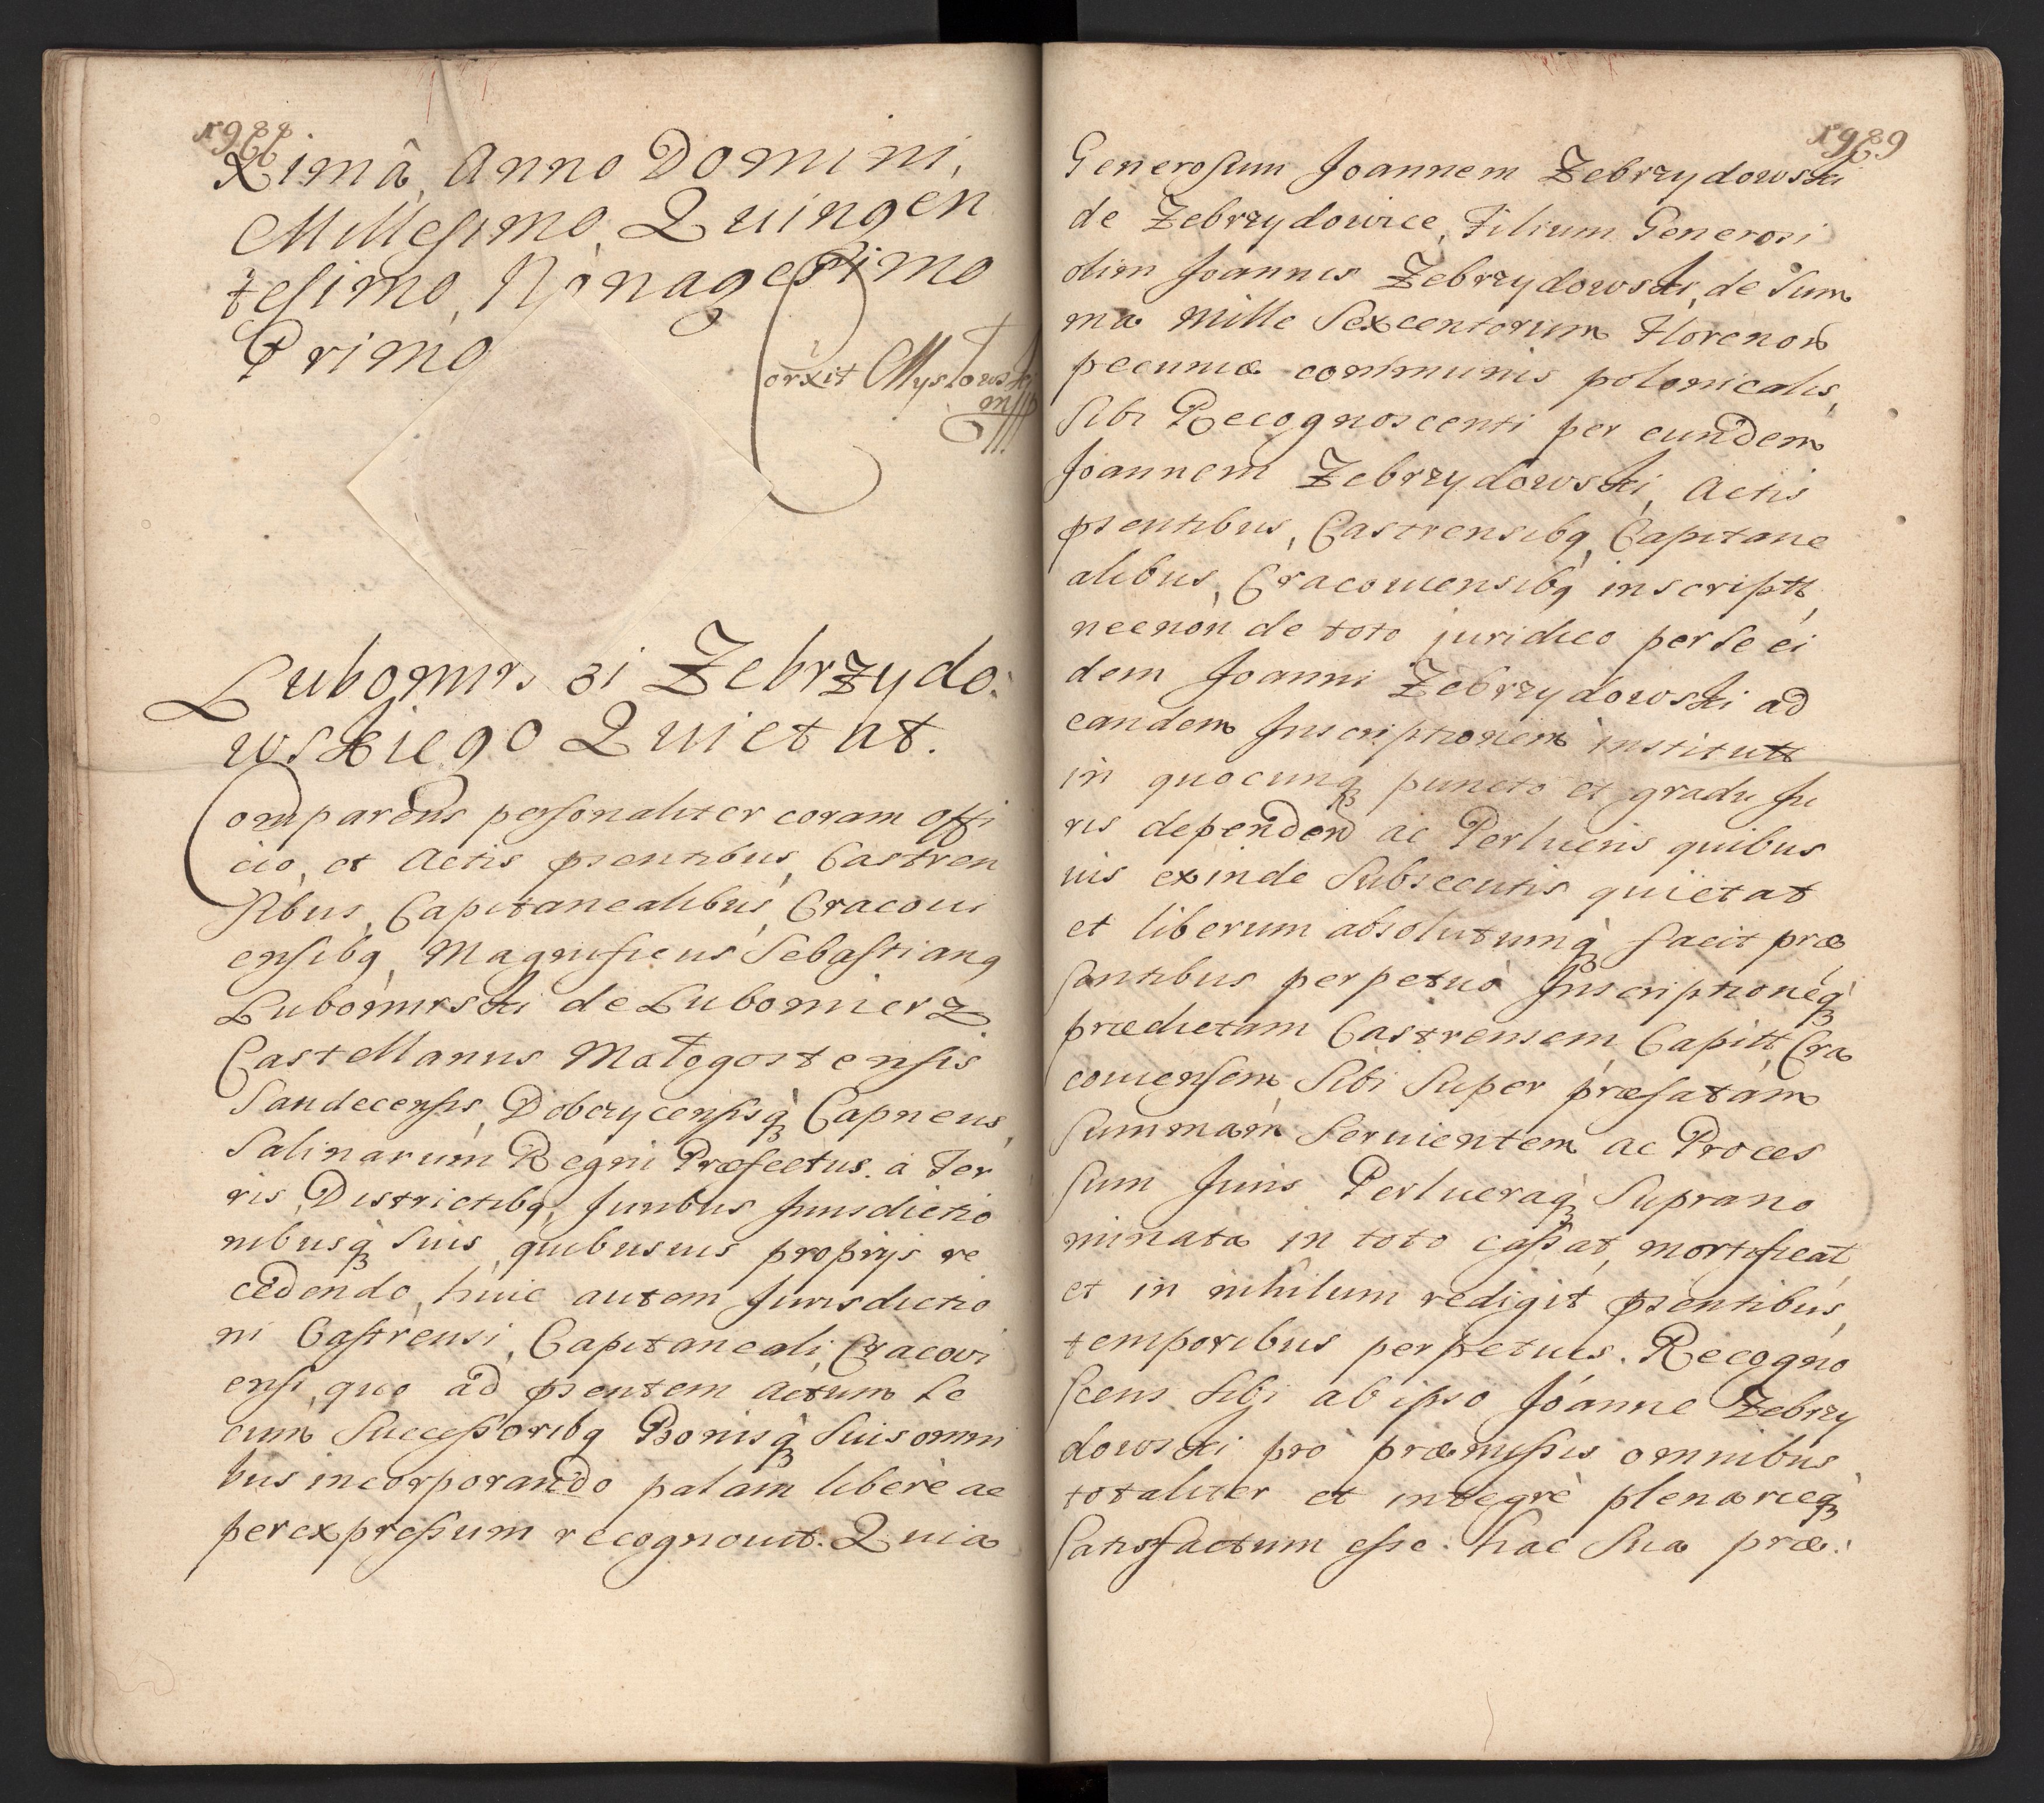 1988
Ximâ, Anno Domini,
Millesimo, Quingen
tesimo, Nonagesimo
Primo
Myslowski
mpp
Lubomirski Zebrzydo:
wskiego Quietat.
Comparens personaliter coram offi
cio, et Actis pñentibus, Castren
sibus, Capitanealibus, Cracoui
ensibq, Magnificus Sebastianq
Lubomirski de Lubomierz
Castellanus Małogostensis
Sandecensis, Dobczycensisq Capneus,
Salinarum Regni Præfectus. à Ter
ris, Districtibq, Juribus Jurisdictio
nibusq Suis, quibusuis proprijs re
cedendo, huic autem Jurisdictio
ni Castrensi, Capitaneali, Cracovi
ensi, quo ad pñentem Actum Se
cum Successoribq Bonisq Suis omni
bus incorporando palam liberè ac
per expressum recognouit. Quia
1989
Generosum Joannem Zebrzydowski
de Zebrzydowice, Filium Generosi
olim Joannis Zebrzydowski, de Sum
ma Mille Sexcentorum Florenor
pecuniæ communis polonicalis,
Sibi Recognoscenti per eundem
Joannem Zebrzydowski, Actis
pñentibus, Castrensibq, Capitane
alibus, Cracouiensibq inscriptt,
necnon de toto juridico per Se ei
dem Joanni Zebrzydowski ad
eandem Inscriptionem institutt
in quocunq puncto et gradu Ju
ris dependen ac Perlucris quibus
uis exinde Subsecutis quietat
et liberum absolutumq facit præ
sentibus perpetuò Inscriptionéq
prædictam Castrensem, Capitt, Cra
couiensem, Sibi Super præfatam
Summam Seruientem ac Proces
sum Juris Perlucraq Suprano
minata in toto cassat, mortificat,
et in nihilum redigit pñentibus,
temporibus perpetuis. Recogno
scens Sibi ab ipso Joanne Zebrzy
dowski pro præmissis omnibus
totaliter et integrè plenarieq
Satisfactum esse. hac Sua præ: